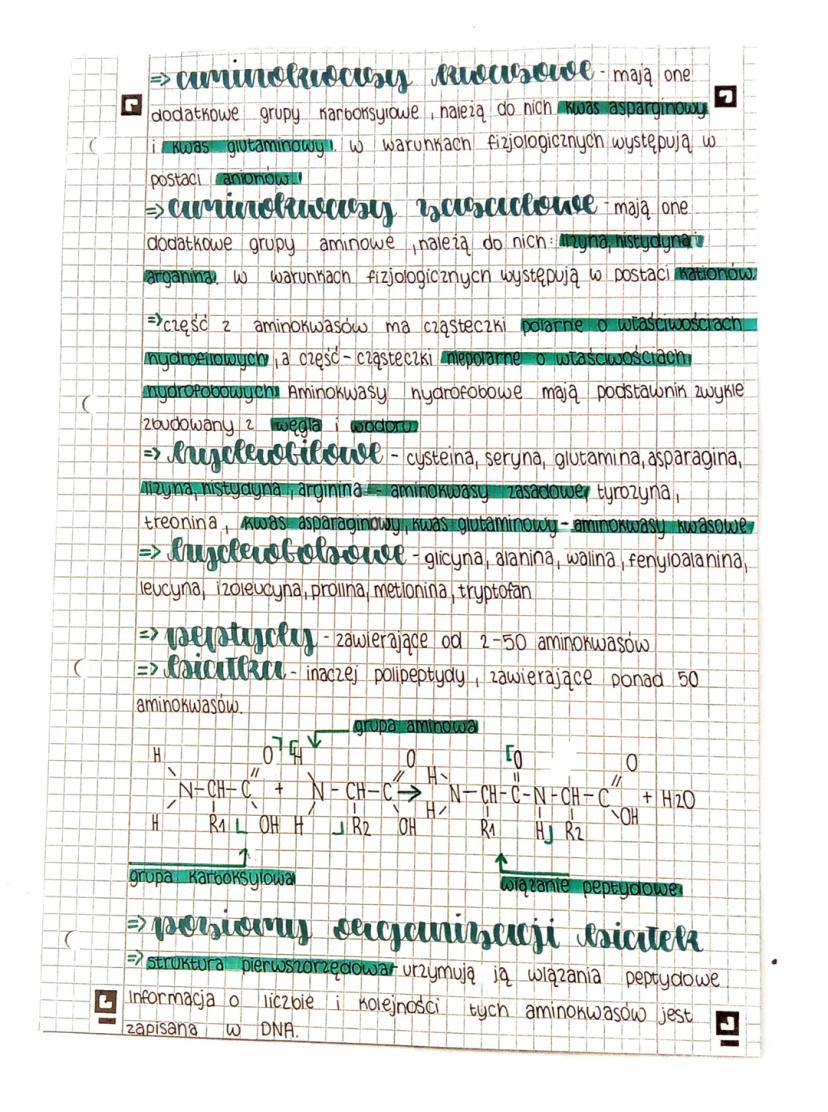 => aminokwasy kwasowe - mają one
dodatkowe grupy karboksylowe, należą do nich kwas asparginowy
i kwas glutaminowy. w warunkach fizjologicznych występują w
postaci anionów.
=> aminokwasy zasadowe - mają one
dodatkowe grupy aminowe, należą do nich: lizyna, histydyna,
arganina. w warunkach fizjologicznych występują w postaci kationów.
=> część z aminokwasów ma cząsteczki polarne o właściwościach
hydrofilowych, a część - cząsteczki niepolarne o właściwościach
hydrofobowych. Aminokwasy hydrofobowe mają podstawnik zwykle
zbudowany z węgla i wodoru
=> hydrofilowe - cysteina, seryna, glutamina, asparagina,
lizyna, histydyna, arginina - aminokwasy zasadowe, tyrozyna,
treonina, kwas asparaginowy, kwas glutaminowy - aminokwasy kwasowe
=> hydrofobowe - glicyna, alanina, walina, fenyloalanina,
leucyna, izoleucyna, prolina, metionina, tryptofan
=> peptydy - zawierające od 2-50 aminokwasów
=> białka - inaczej polipeptydy, zawierające ponad 50
aminokwasów.
grupa aminowa
H O H O O O
H
N-CH-C + N-CH-C → N-CH-C-N-CH-C + H2O
H
H R1 OH H R2 OH R1 H R2 OH
grupa karboksylowa wiązanie peptydowe
=> poziomy organizacji białek
=> struktura pierwszorzędowa - urzymują ją wiązania peptydowe
Informacja o liczbie i kolejności tych aminokwasów jest
zapisana w DNA.